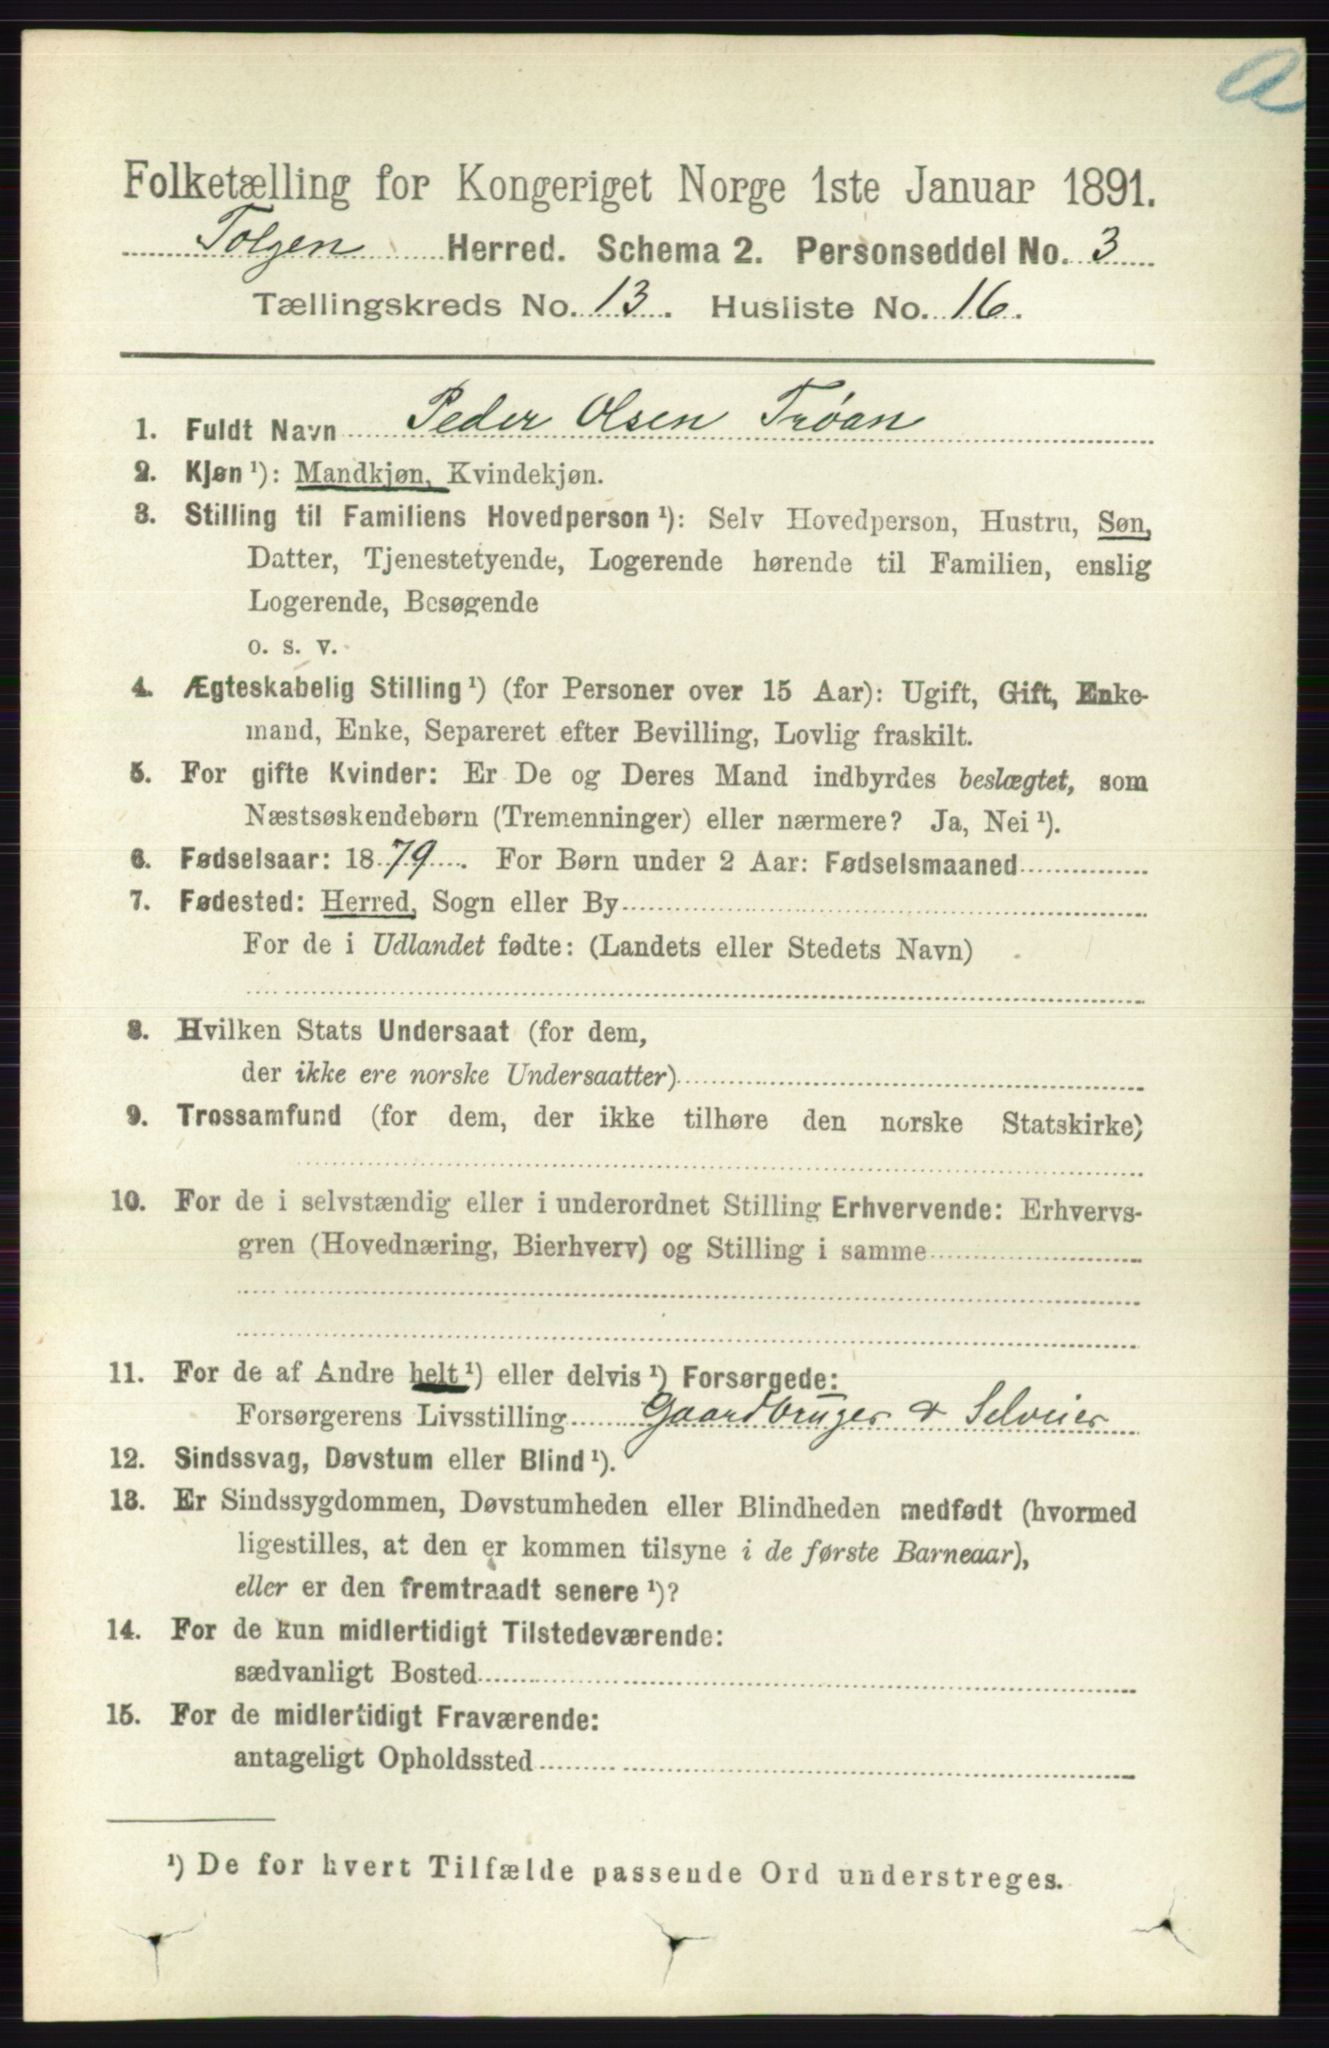 a
Folketælling for Kongeriget Norge 1ste Januar 1891.
Tolgen Herred. Schema 2. Personseddel No. 3
Tællingskreds No. 13. Husliste No. 16.
1. Fuldt Navn Peder Olsen Trøan
2. Kjøn ¹): Mandkjøn, Kvindekjøn.
3. Stilling til Familiens Hovedperson ¹): Selv Hovedperson, Hustru, Søn,
Datter, Tjenestetyende, Logerende hørende til Familien, enslig
Logerende, Besøgende
o. s. v.
4. Ægteskabelig Stilling ¹) (for Personer over 15 Aar): Ugift, Gift, Enke-
mand, Enke, Separeret efter Bevilling, Lovlig fraskilt.
5. For gifte Kvinder: Er De og Deres Mand indbyrdes beslægtet, som
Næstsøskendebørn (Tremenninger) eller nærmere? Ja, Nei ¹).
6. Fødselsaar: 1879. For Børn under 2 Aar: Fødselsmaaned
7. Fødested: Herred, Sogn eller By
For de i Udlandet fødte: (Landets eller Stedets Navn)
8. Hvilken Stats Undersaat (for dem,
der ikke ere norske Undersaatter)
9. Trossamfund (for dem, der ikke tilhøre den norske Statskirke)
10. For de i selvstændig eller i underordnet Stilling Erhvervende: Erhvervs-
gren (Hovednæring, Bierhverv) og Stilling i samme
11. For de af Andre helt ¹) eller delvis ¹) Forsørgede:
Forsørgerens Livsstilling Gaardbruger & Selveier
12. Sindssvag, Døvstum eller Blind ¹).
13. Er Sindssygdommen, Døvstumheden eller Blindheden medfødt (hvormed
ligestilles, at den er kommen tilsyne i de første Barneaar),
eller er den fremtraadt senere ¹)?
14. For de kun midlertidigt Tilstedeværende:
sædvanligt Bosted
15. For de midlertidigt Fraværende:
antageligt Opholdssted
¹) De for hvert Tilfælde passende Ord understreges.